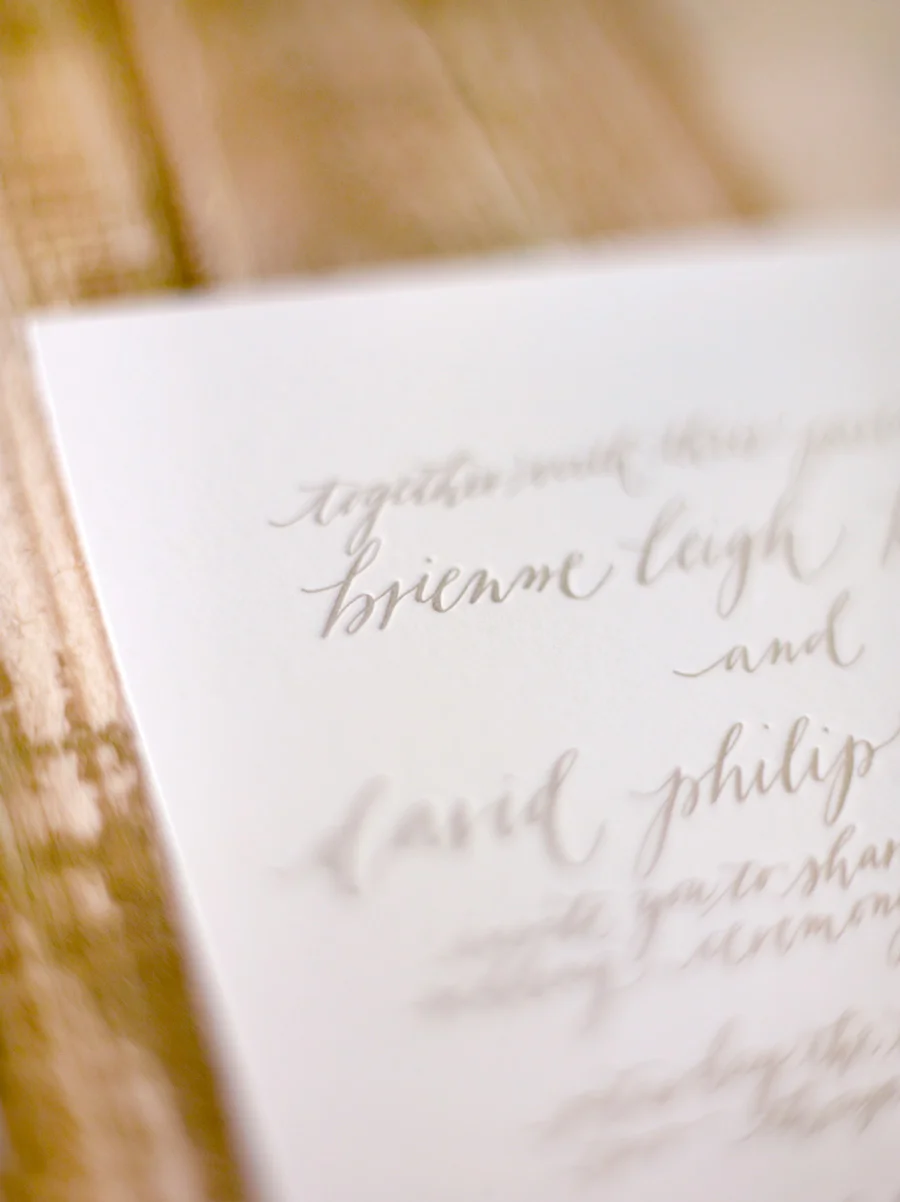 together with their
brienne leigh
and
david philip
invite you to shar
wedding ceremony
the